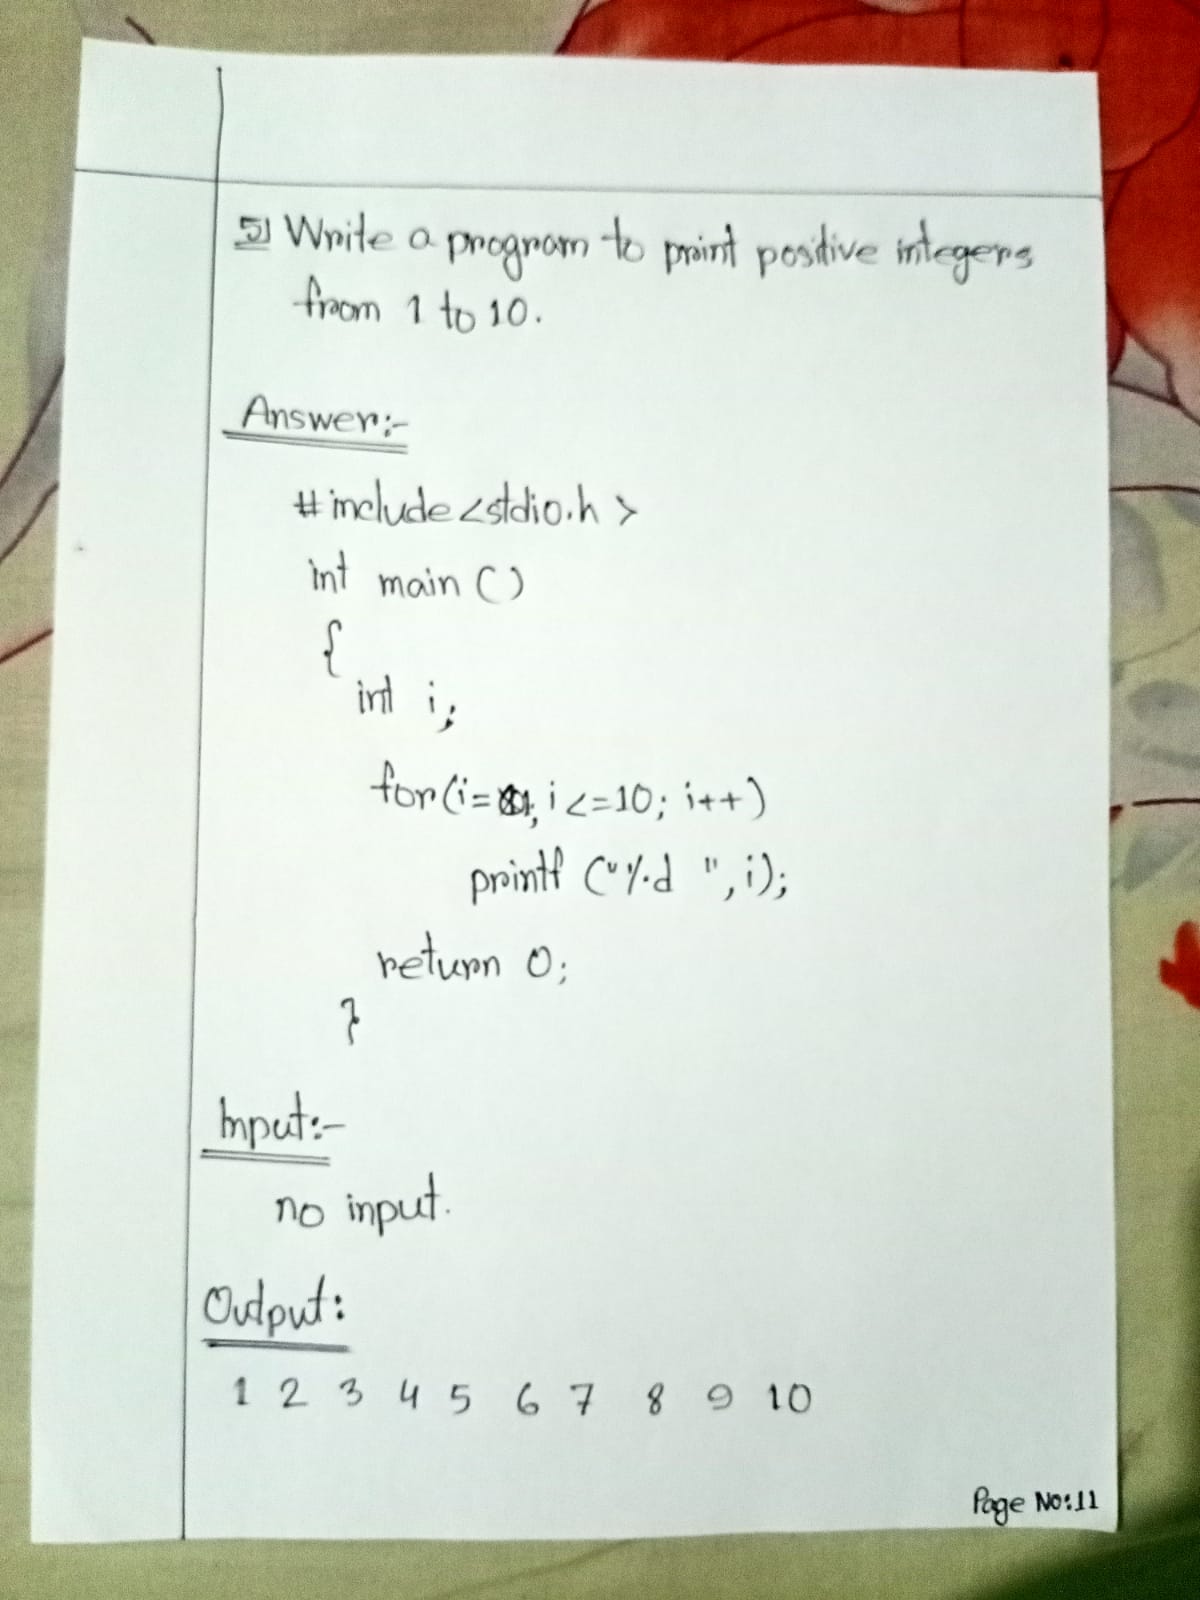 5) Write a program to print positive integers
from 1 to 10.
Answer:-
#include<stdio.h>
int main()
{
int i;
for(i=1; i<=10; i++)
printf("%d ", i);
return 0;
}
Input:-
no input.
Output:
1 2 3 4 5 6 7 8 9 10
Page No:11